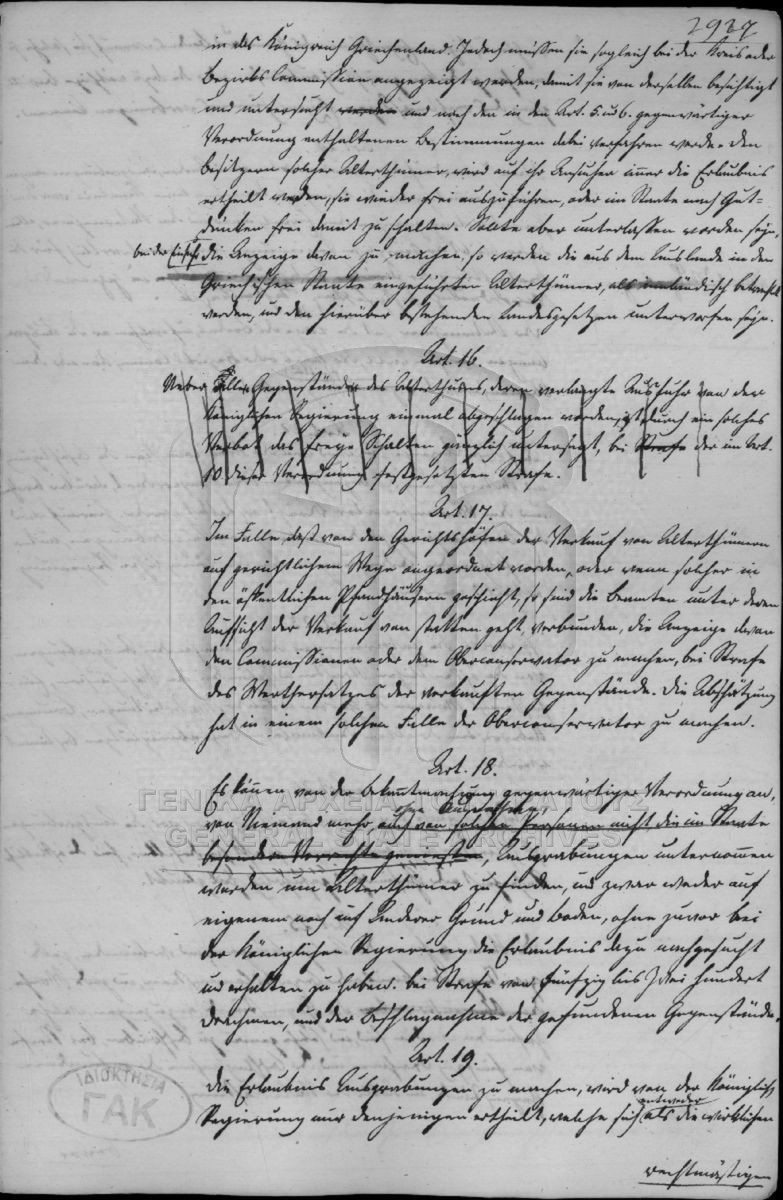 2937
in das Königreich Griechenland. Jedoch müssen sie sogleich bei der Kreis oder
Bezirks Commission angezeigt werden, damit sie von derselben besichtigt
und untersucht werden und nach den in den Art. 5. u. 6. gegenwärtiger
Verordnung enthaltenen Bestimmungen dabei verfahren werde. Den
Besitzern solcher Alterthümer, wird auf ihr Ansuchen immer die Erlaubnis
ertheilt werden, sie wieder frei auszuführen, oder im Staate nach Gut-
dünken frei damit zu schalten. Sollte aber unterlassen worden seyn,
bei der Einfuhr die Anzeige davon zu machen, so werden die aus dem Auslande in den
Griechischen Staate eingeführten Alterthümer, als inländisch betrachtet
werden, und den hierüber bestehenden Landesgesetzen unterworfen seyn.
Art. 16.
Ueber Alle Gegenstände des Alterthums, deren verlangte Ausfuhr von der
Königlichen Regierung einmal abgeschlagen worden, ist durch ein solches
Verbot das freye Schalten gänzlich untersagt, bei Strafe der im Art.
10 dieser Verordnung festgesetzten Strafe.
Art. 17.
Im Falle, daß von den Gerichtshöfen der Verkauf von Alterthümern
auf gerichtlichem Wege angeordnet worden, oder wenn solcher in
den öffentlichen Pfandhäusern geschieht, so sind die Beamten unter deren
Aufsicht der Verkauf von statten geht, verbunden, die Anzeige davon
den Commissionen oder dem Oberconservator zu machen, bei Strafe
des Werthersatzes der verkauften Gegenstände. Die Abschätzung
hat in einem solchen Falle der Oberconservator zu machen.
Art. 18.
Es können von der Bekanntmachung gegenwärtiger Verordnung an,
ohne Ausnahme
von Niemand mehr, auch von solchen Personen nicht die im Staate
besondere Vorrechte genießen, Ausgrabungen unternommen
werden, um Alterthümer zu finden, und zwar weder auf
eigenem noch auf Anderer Grund und Boden, ohne zuvor bei
der Königlichen Regierung die Erlaubnis dazu nachgesucht
und erhalten zu haben. bei Strafe von fünfzig bis zwei hundert
Drachmen, und der Beschlagnahme der gefundenen Gegenstände.
Art. 19.
Die Erlaubnis Ausgrabungen zu machen, wird von der Königlich
entweder
Regierung nur denjenigen ertheilt, welche sich als die wirklichen
rechtmäßigen
ΓΕΝΙΚΑ ΑΡΧΕΙΑ ΤΟΥ ΚΡΑΤΟΥΣ
GENERAL STATE ARCHIVES
ΙΔΙΟΚΤΗΣΙΑ
ΓΑΚ